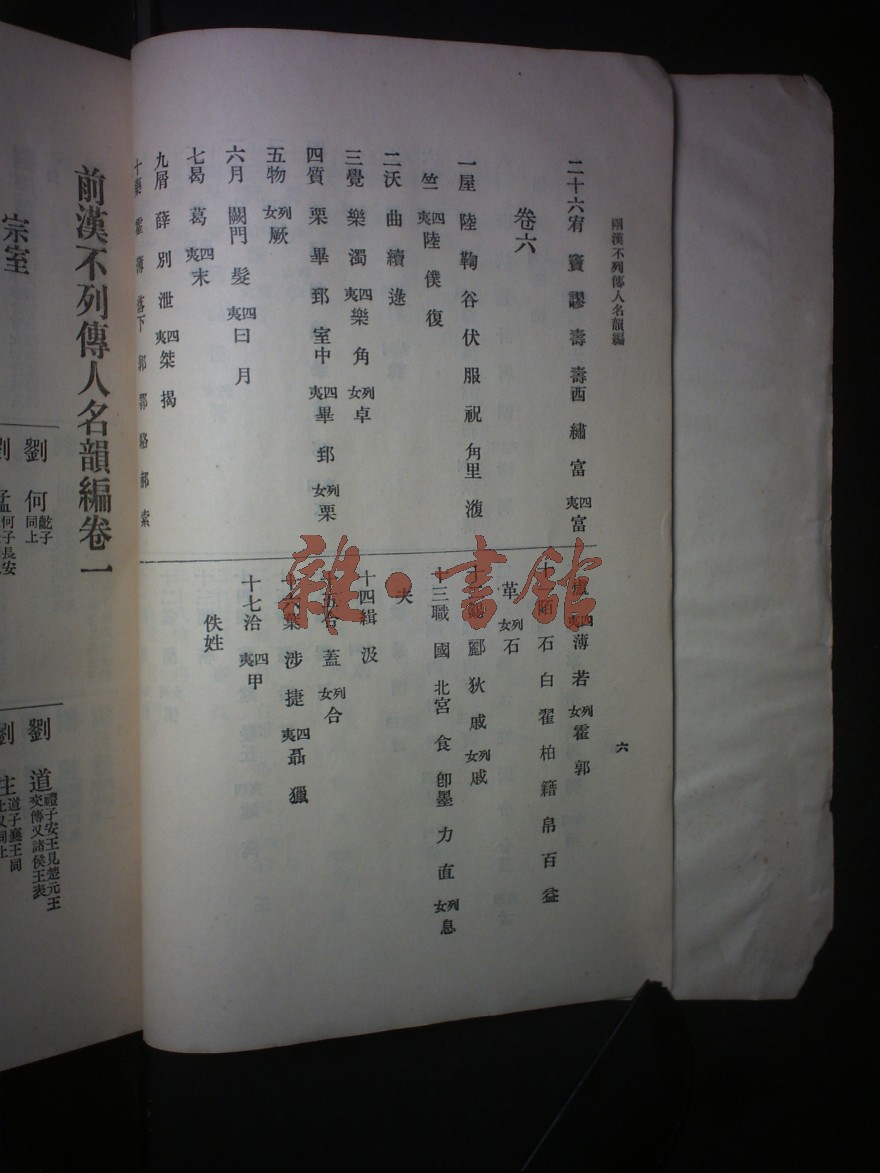 兩漢不列傳人名韻編
二十六宥 竇 謬 壽 壽西 繡 富 四夷 富
卷六
一屋 陸 鞠 谷 伏 服 祝 角里 澓
竺 四夷 陸 僕 復
二沃 曲 續 逯
三覺 樂 濁 四夷 樂 角 列女 卓
四質 栗 畢 郅 室中 四夷 畢 郅 列女 栗
五物 列女 厥
六月 闕門 髮 四夷 曰 月
七曷 葛 四夷 末
九屑 薛 別 泄 四夷 桀 揭
十藥 霍 薄 落下 郭 鄂 駱 郝 索
四夷 薄 若 列女 霍 郭
石 白 翟 柏 籍 帛 百 益
革 列女 石
酈 狄 戚 列女 戚
十三職 國 北宮 食 卽墨 力 直 列女 息
夫
十四緝 汲
十五合 蓋 列女 合
十六葉 涉 捷 四夷 聶 獵
十七洽 四夷 甲
佚姓
六
雜·書館
前漢不列傳人名韻編卷一
宗室
劉 何 齕子 同上
劉 道 禮子安王見楚元王 交傳又諸侯王表
劉 孟 何子長安
劉 注 道子襄王同 上又同上